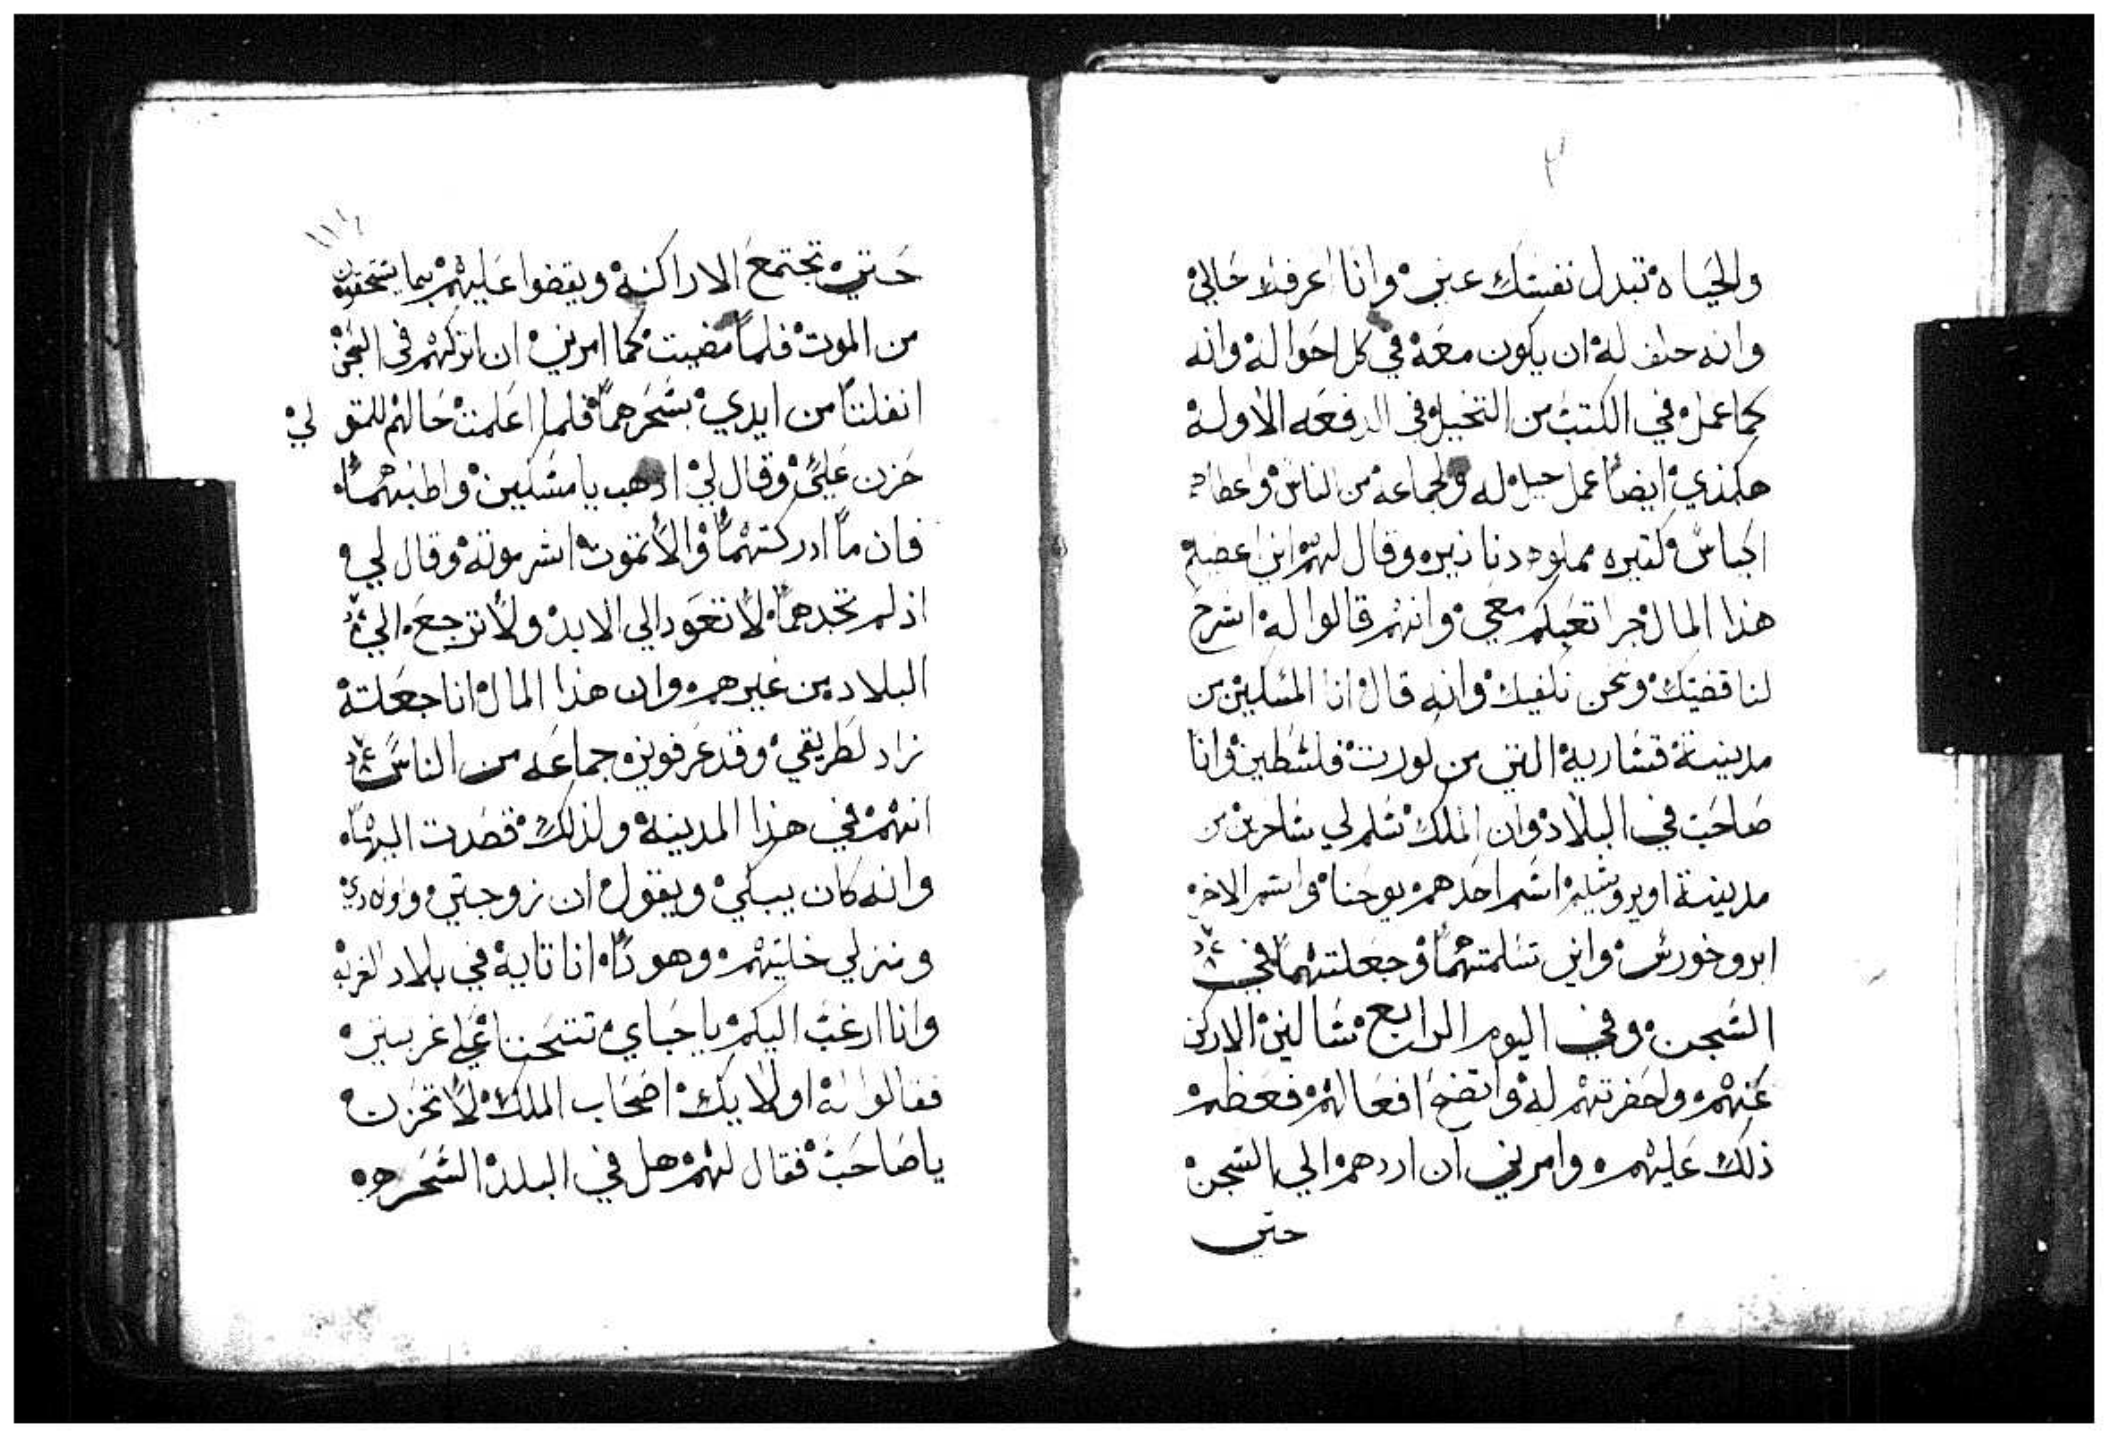 ٢
والحياه تبدل نفسك عني وانا اعرفك حالي
وانه حلف له ان يكون معه في كل احواله وانه
كما عمل في الكتب من التخيل في الدفعه الاوله
هكذي ايضا عمل حيله له ولجماعه من الناس واعطاهم
اكياس كتيره مملوه دنانير وقال لهم اني اعطيكم
هذا المال جرا تعبكم معي وانهم قالوا له اشرح
لنا قضيتك ونحن نكفيك وانه قال انا المسكين من
مدينة قيسارية التي من كورت فلسطين وانا
صاحب في البلاد وان الملك سلم لي ساحرين من
مدينة اويروشليم اسم احدهم يوحنا واسم الاخر
ابروخورس واني تسلمتهما وجعلتهما في
السجن وفي اليوم الرابع سالني الاركن
عنهم واحضرتهم له واتضح افعالهم فعظم
ذلك عليهم وامرني ان اردهم الي السجن
حتي
١١٤
حتي تجتمع الاراكنه ويقضوا عليهم بما يستحقون
من الموت فلما مضيت كما امرني ان اتركهم في السجن
انفلتا من ايدي بسحرهما فلما اعلمت حالهم للمتولي
حزن علي وقال لي ادهب يا مسكين واطلبهما
فان ما ادركتهما والا تموت اشر موته وقال لي
اذ لم تجدهما لا تعود الي الابد ولا ترجع الي
البلاد من غيرهم وان هذا المال انا جعلته
زاد لطريقي وقد عرفوني جماعه من الناس
انهم في هذا المدينه ولذلك قصدت اليها
وانه كان يبكي ويقول ان زوجتي واولادي
ومنزلي خليتهم وهوذا انا تايه في بلاد الغربه
وانا ارغب اليكم يا حباي تتحننا علي غربتي
فقالوا له اولايك اصحاب الملك لا تحزن
يا صاحب فقال لهم هل في البلد السحره